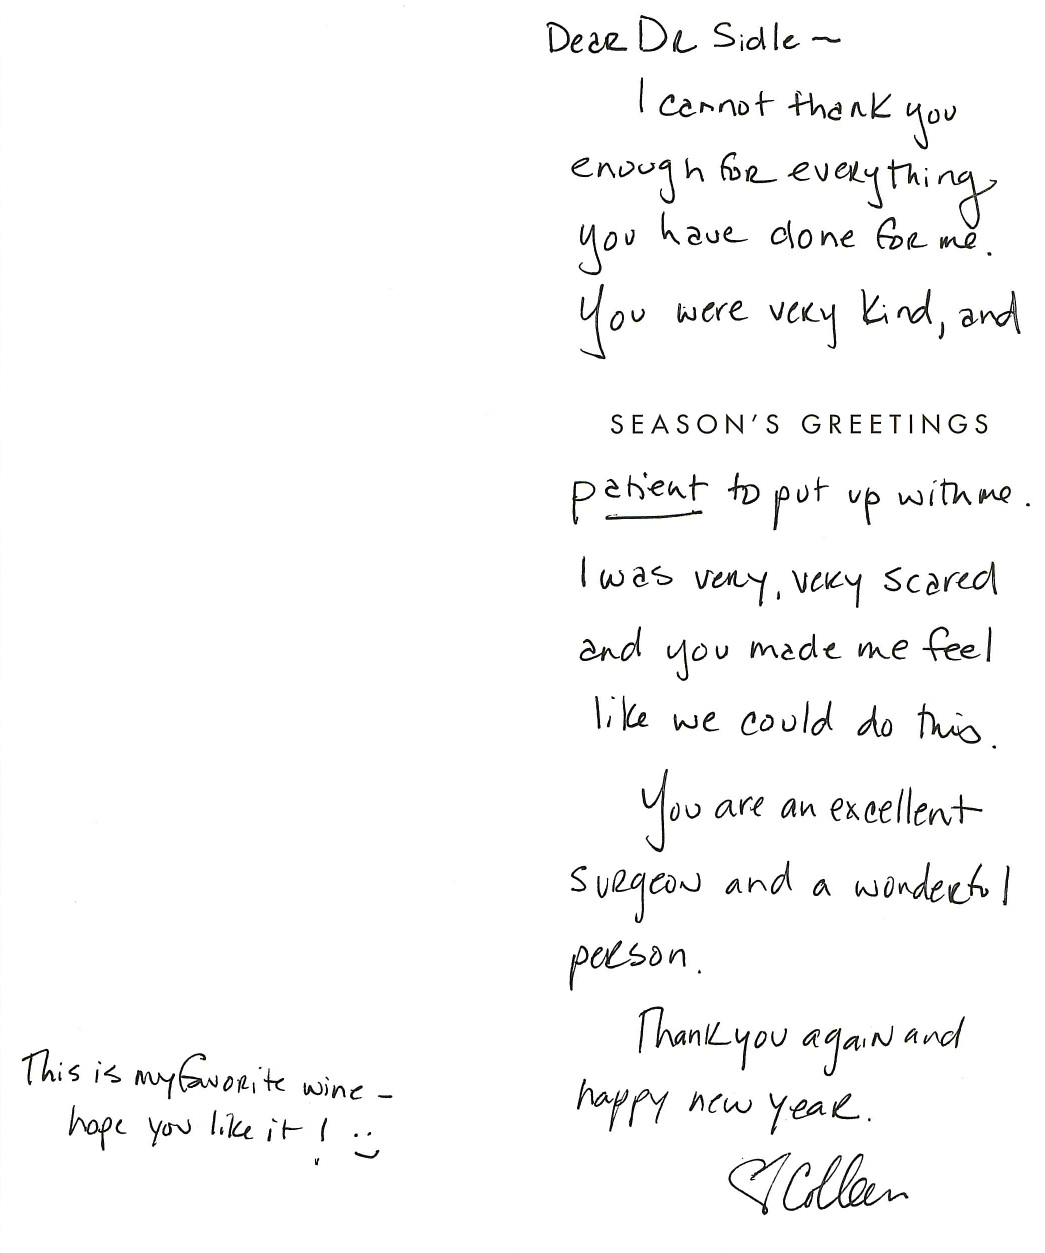 Dear Dr Sidle ~
I cannot thank you
enough for everything
you have done for me.
You were very kind, and
SEASON'S GREETINGS
patient to put up with me.
I was very, very scared
and you made me feel
like we could do this.
You are an excellent
surgeon and a wonderful
person.
Thank you again and
happy new year.
♡ Colleen
This is my favorite wine –
hope you like it! :)